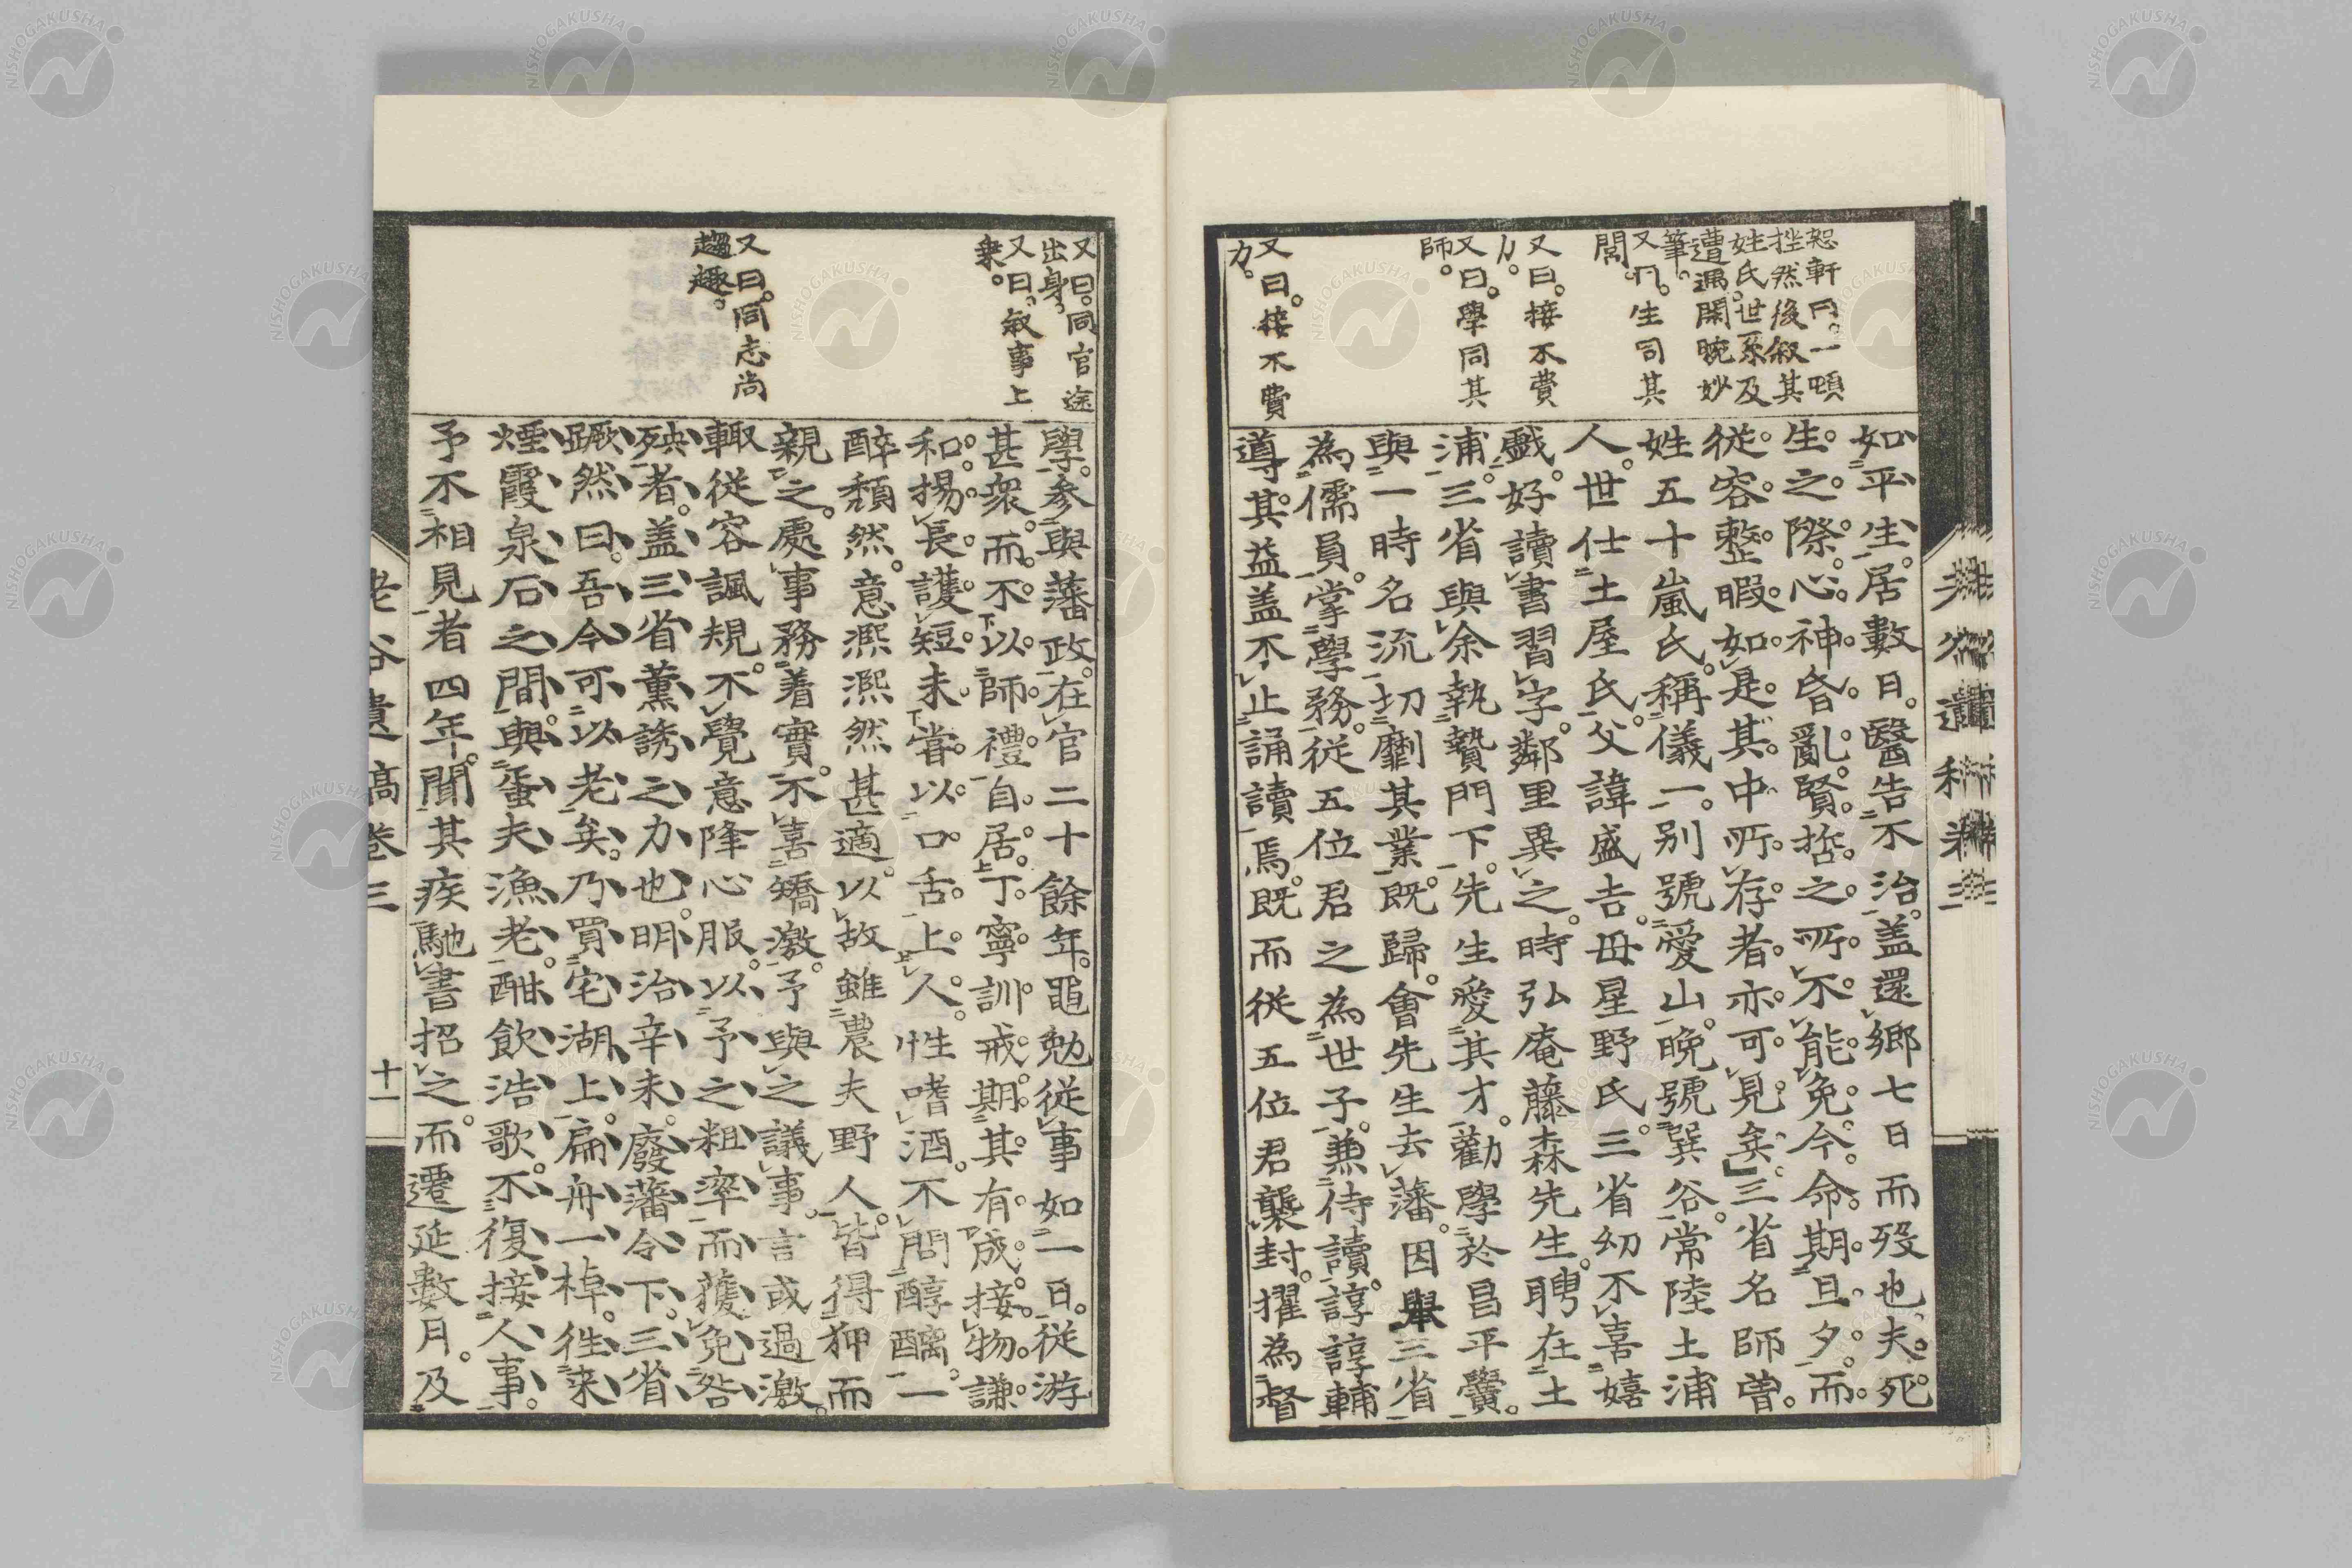 恕軒曰。一頓
挫然後叙其
姓氏。世系及
遭遇閑暇妙
筆。
又曰。生同其
閭。
又曰。接不費
力。
又曰。學同其
師。
又曰。接不費
力。
如平生。居數日。醫告不治。蓋還鄉七日而歿也。夫死
生之際。心神昏亂。賢哲之所不能免。今命期旦夕。而
從容整暇如是。其中所存者。亦可見矣」三省名師曽。
姓五十嵐氏。稱儀一。別號愛山。晩號巽谷。常陸土浦
人。世仕土屋氏。父諱盛吉。母星野氏。三省幼不喜嬉
戲。好讀書習字。鄰里異之。時弘庵藤森先生。聘在土
浦。三省與余執贄門下。先生愛其才。勸學於昌平黌。
與一時名流切劘其業。既歸。會先生去藩。因舉三省
為儒員。掌學務。從五位君之為世子。兼侍讀。諄諄輔
導。其益蓋不止誦讀焉。既而從五位君襲封。擢為督
老谷遺稿卷三
又曰。同官途
出身。
又曰。叙事上
乗。
又曰。同志尚
趨趣。
學。參與藩政。在官二十餘年。黽勉從事如一日。從游
甚衆。而不以師禮自居。丁寧訓戒。期其有成。接物謙
和。揚長護短。未嘗以口舌上人。性嗜酒。不問醇醨。一
醉頽然。意凞凞然甚適。以故雖農夫野人。皆得狎而
親之。處事務着實。不喜矯激。予與之議事。言或過激。
輙從容諷規。不覺意降心服。以予之粗率。而獲免咎
殃者。蓋三省薫誘之力也。明治辛未。廢藩令下。三省
蹶然曰。吾今可以老矣。乃買宅湖上。扁舟一棹。徃來
煙霞泉石之間。與蜑夫漁老。酣飲浩歌。不復接人事。
予不相見者四年。聞其疾。馳書招之。而遷延數月。及
老谷遺稿卷三
十一